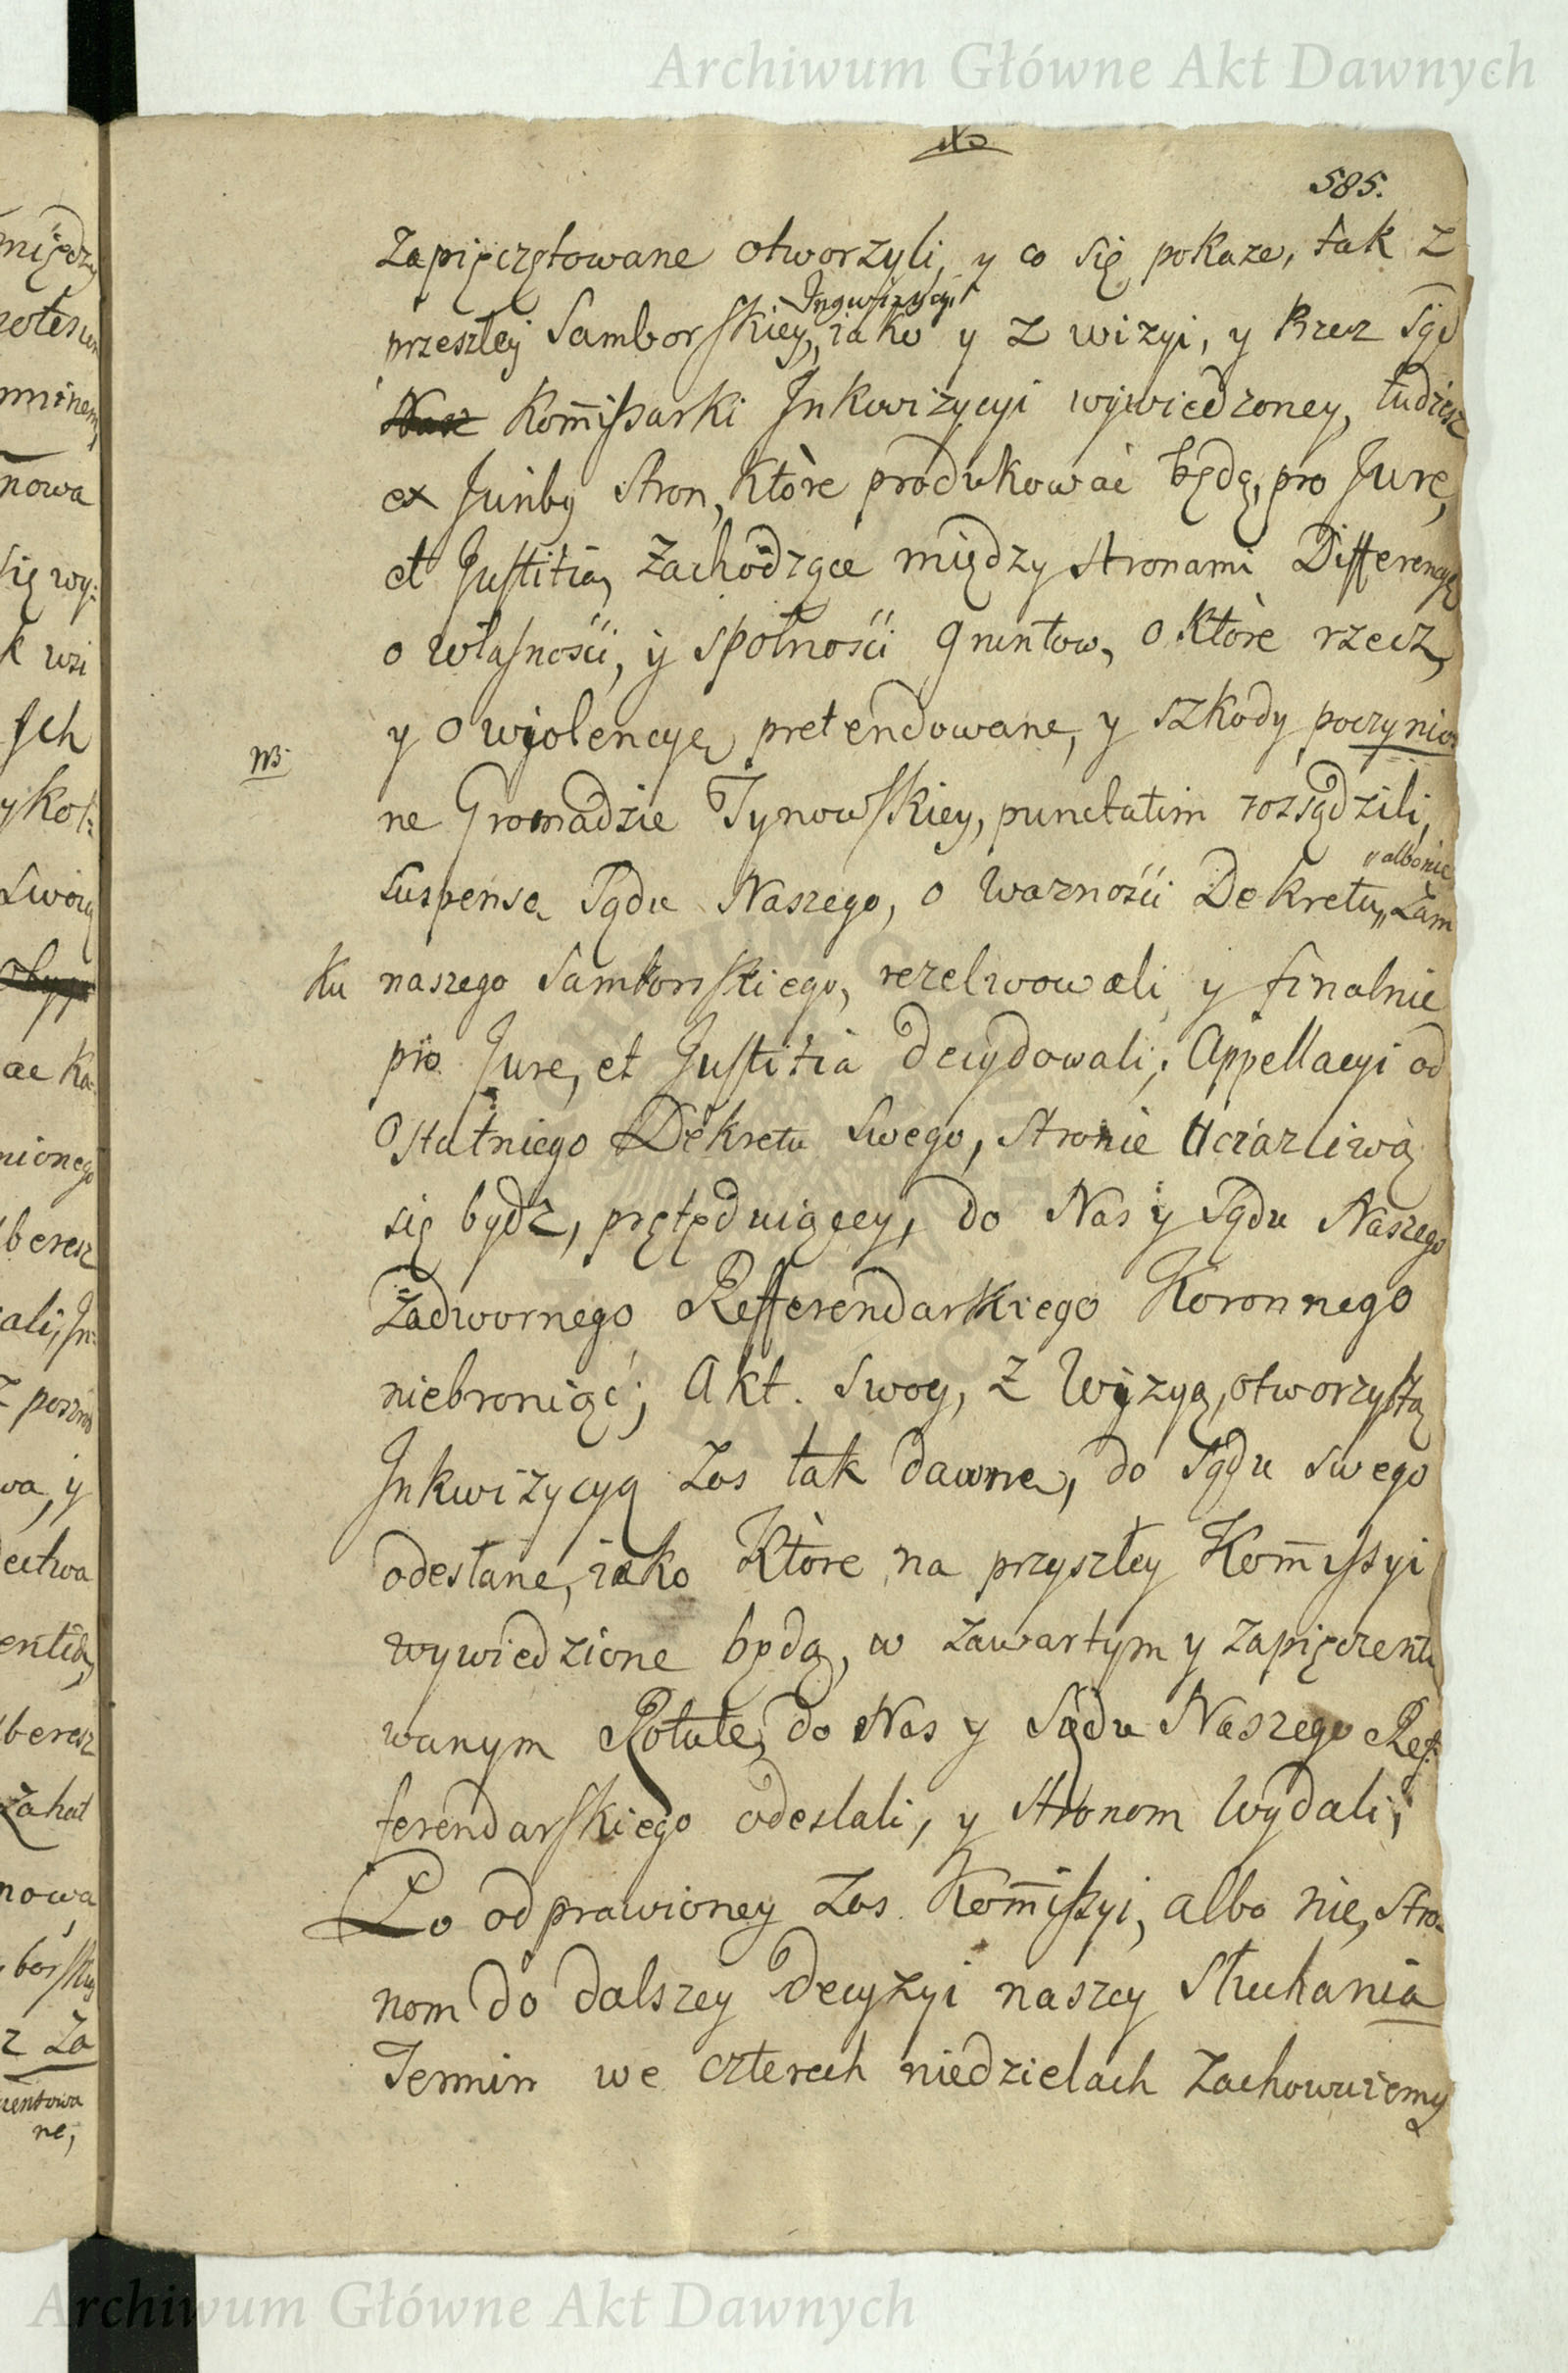 Archiwum Główne Akt Dawnych
585.
Zapięczętowane otworzyli, y co się pokaze, tak z
Inqwizycyi
przeszłey Samborskiey, iako y z wizyi, y Przez Sąd
Nasz Kom̄issarki Inkwizycyi wywiedzoney, tudziesz
ex Juribq Stron, Ktòre produkowac będą, pro Jure,
et Justitia, Zachodzące między stronami Differencye
o własnosći, y społnosći gruntow, o Ktòre rzecz,
y o wiolencyę pretendowane, y szkody poczynio
NB
ne Gromadzie Tynowskiey, punctatim rozsądzili,
albo nie
Suspensę Sądu Naszego, o waznosći Dekretu, Zam
Ku naszego Samborskiego, rezelwowali y finalnie
pro Jure, et Justitia decydowali; Appellacyi od
Ostatniego Dekretu Swego, Stronie Uciązliwą
się bydz, prętęduiącey, do Nas y Sądu Naszego
Zadwornego Refferendarskiego Koronnego
niebroniąc; Akt. Swoy, z Wizyą, otworzystą
Inkwizycyą Zas tak dawne, do Sądu swego
odesłane, iako Ktòre na przyszłey Kom̄issyi
wywiedzione będą, w zawartym y zapięczento
wanym Rotule, do Nas y Sądu Naszego Ref:
ferendarskiego odeslali, y Stronom wydali;
Po odprawioney Zas Kom̄issyi, albo nie, Stro-
nom do dalszey decyzyi naszey Słuchania
Termin we czterech niedzielach Zachowuiemy
Archiwum Główne Akt Dawnych